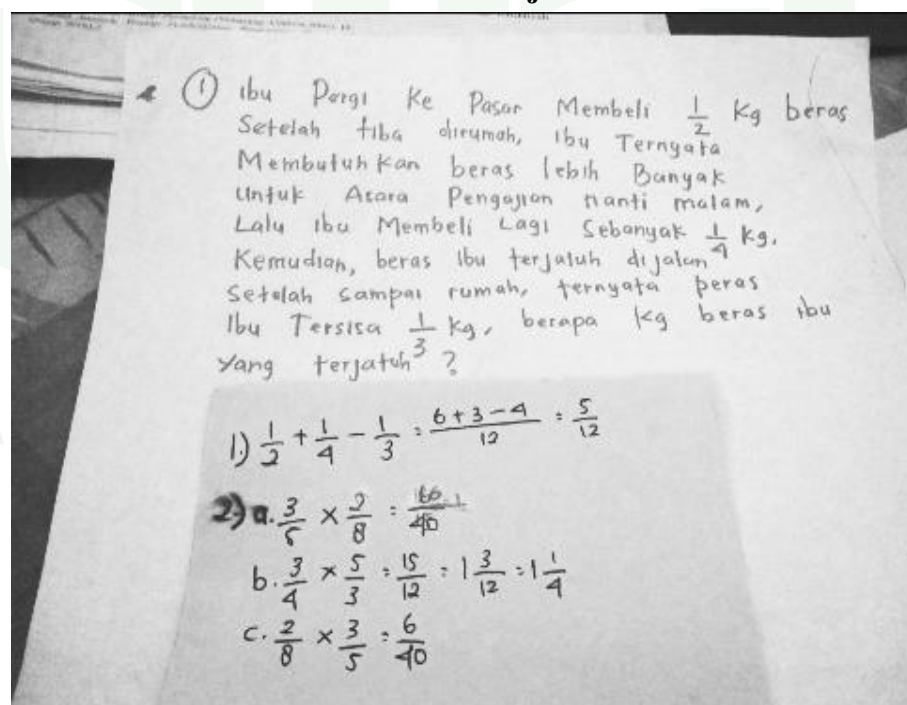 ① ibu Pergi Ke Pasar Membeli 1/2 Kg beras
Setelah tiba dirumah, ibu Ternyata
Membutuhkan beras lebih Banyak
Untuk Acara Pengajian nanti malam,
Lalu ibu Membeli Lagi Sebanyak 1/4 Kg.
Kemudian, beras ibu terjatuh dijalan
Setelah sampai rumah, ternyata beras
Ibu Tersisa 1/3 Kg, berapa kg beras ibu
Yang terjatuh?
1.) 1/2 + 1/4 - 1/3 = (6+3-4)/12 = 5/12
2.) a. 3/5 × 2/8 = /40
b. 3/4 × 5/3 = 15/12 = 1 3/12 = 1 1/4
c. 2/8 × 3/5 = 6/40